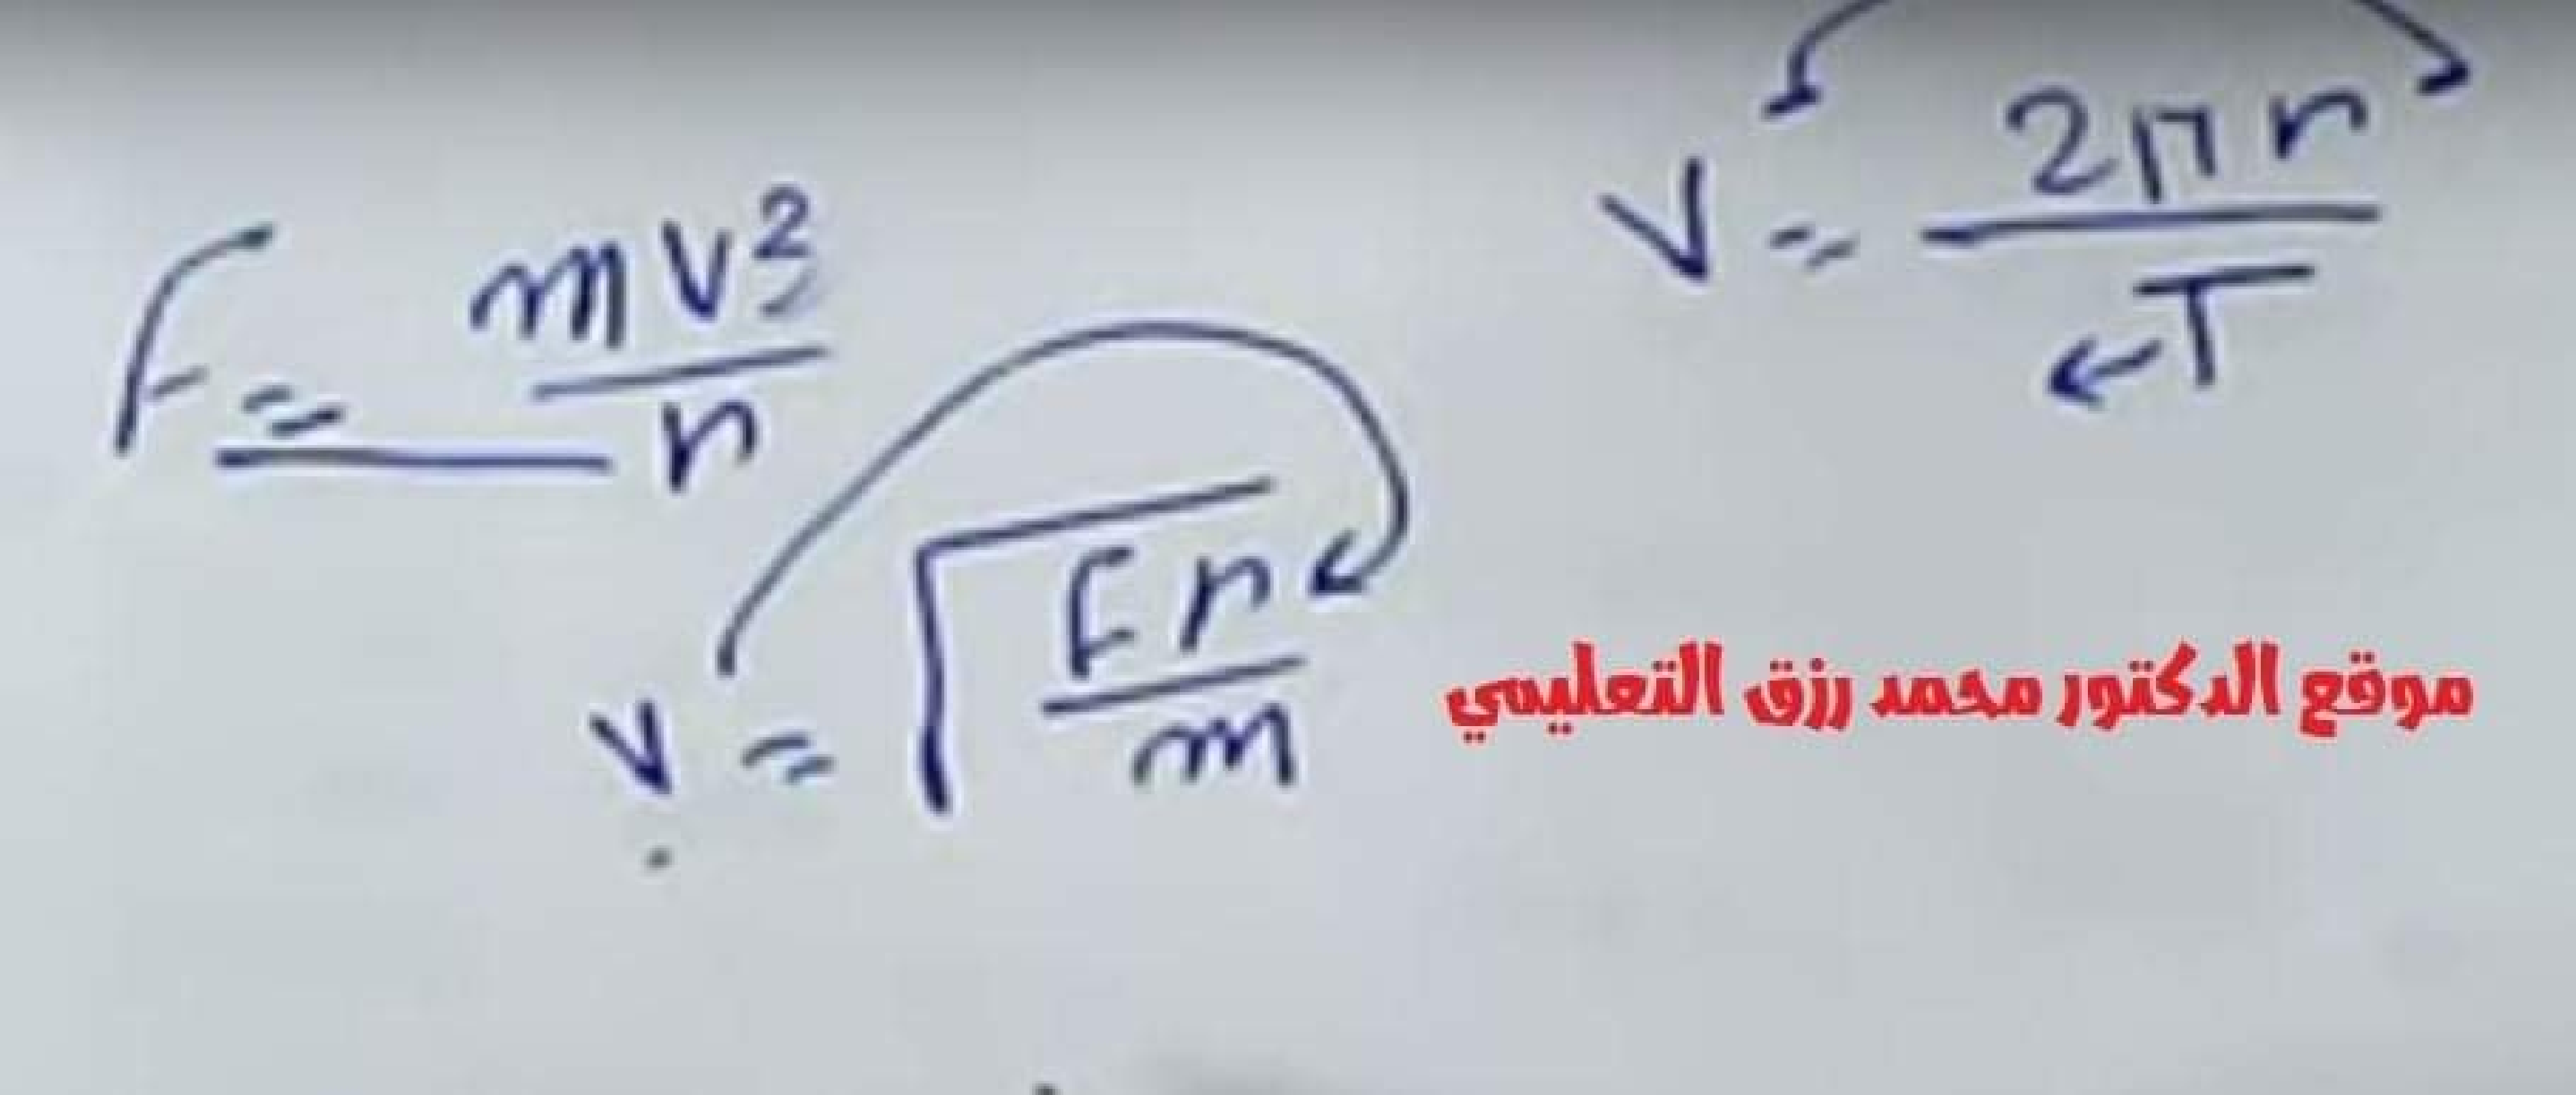 V = 2πr / T
F = mv² / r
v = √(Fr / m)
موقع الدكتور محمد رزق التعليمي